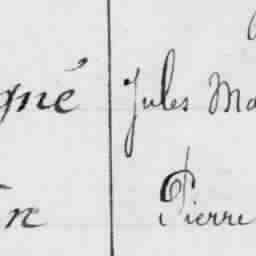 gné Jules Ma
n Pierre